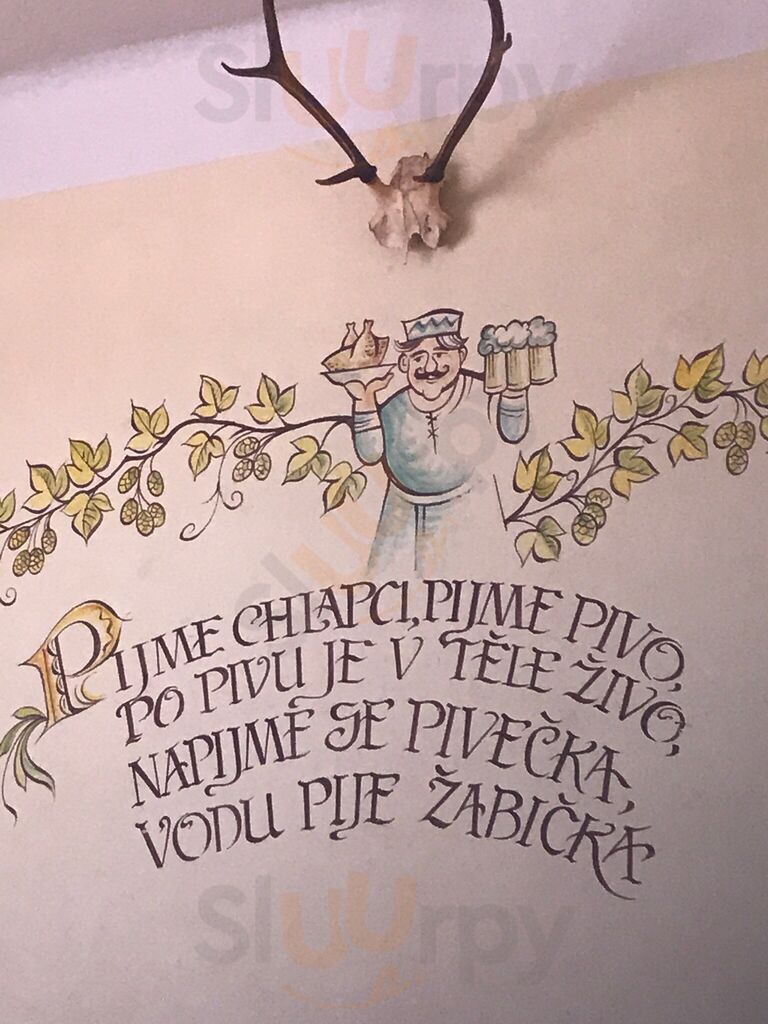 Sluurpy
PIJME CHLAPCI, PIJME PIVO,
PO PIVU JE V TĚLE ŽIVO,
NAPIJME SE PIVEČKA,
VODU PIJE ŽABIČKA
Sluurpy